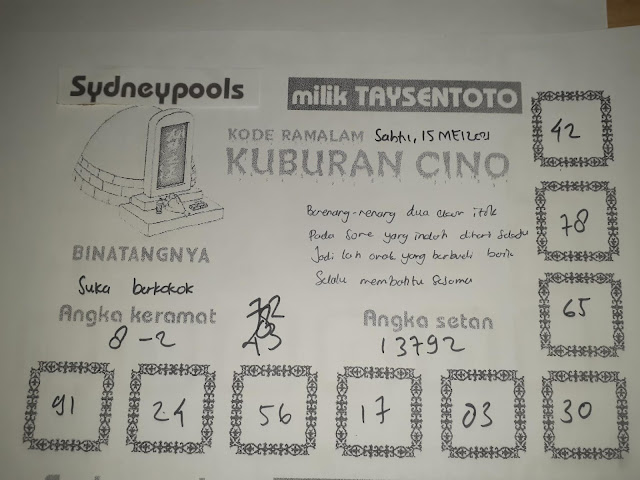 Sydneypools
milik TAYSENTOTO
KODE RAMALAM Sabtu, 15 MEI 2021
KUBURAN CINO
42
Berenang-renang dua ekor itik
Pada Sore yang indah dihari Sabtu
Jadi lah anak yang berbudi baik
Selalu membantu Sesama
78
BINATANGNYA
Suka berkokok
65
Angka keramat
8-2
Angka setan
13792
91
24
56
17
03
30